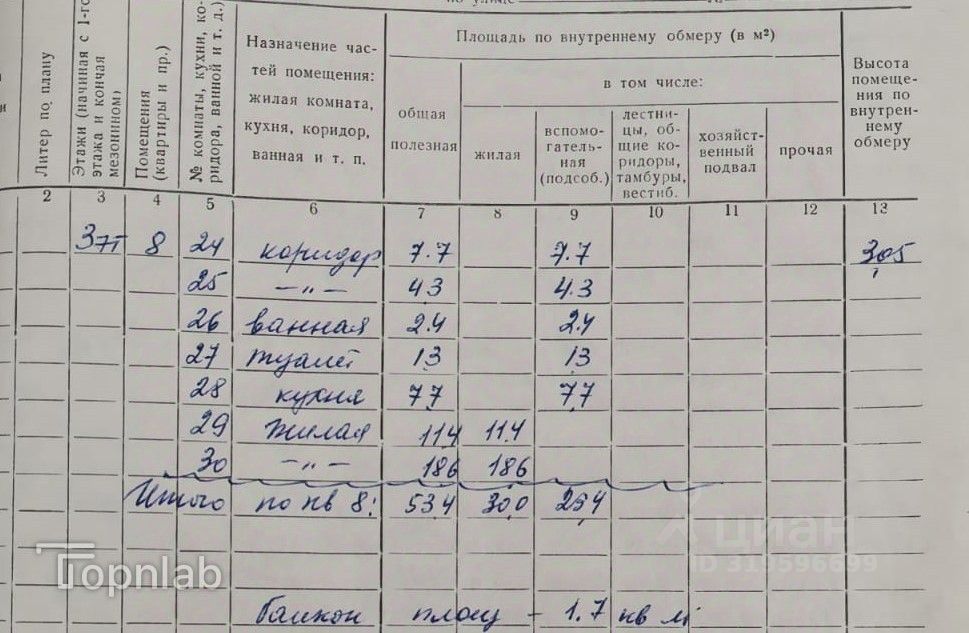 Литер по плану
Этажи (начиная с 1-го
этажа и кончая
мезонином)
Помещения
(квартиры и пр.)
№ комнаты, кухни, ко-
ридора, ванной и т. д.)
Назначение час-
тей помещения:
жилая комната,
кухня, коридор,
ванная и т. п.
Площадь по внутреннему обмеру (в м²)
общая
полезная
в том числе:
жилая
вспомо-
гатель-
ная
(подсоб.)
лестни-
цы, об-
щие ко-
ридоры,
тамбуры,
вестиб.
хозяйст-
венный
подвал
прочая
Высота
помеще-
ния по
внутрен-
нему
обмеру
2 3 4 5 6 7 8 9 10 11 12 13
3 эт 8 24 коридор 7.7 7.7 3,05
25 —„— 4.3 4.3
26 ванная 2.4 2.4
27 туалет 1,3 1,3
28 кухня 7,7 7,7
29 жилая 11,4 11,4
30 —„— 18,6 18,6
Итого по кв 8: 53,4 30,0 23,4
балкон площ - 1.7 кв м
Topnlab
циан
ID 319596699